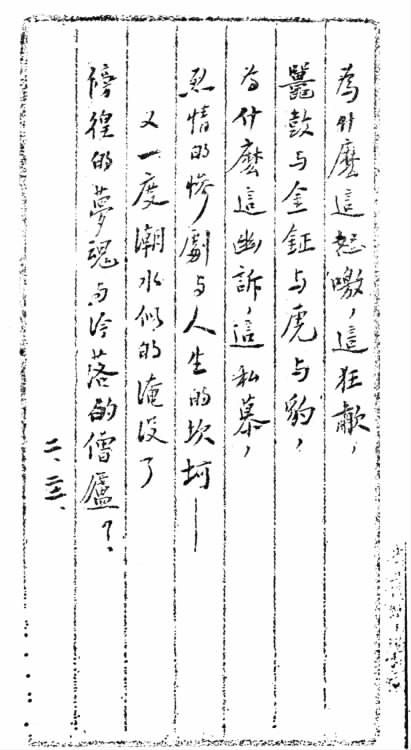 為什麽這怒噭，這狂歗，
鼍鼓与金鉦与虎与豹，
為什麽這幽訴，這私慕，
烈情的慘劇与人生的坎坷——
又一度潮水似的淹没了
傍徨的夢魂与冷落的僧廬？